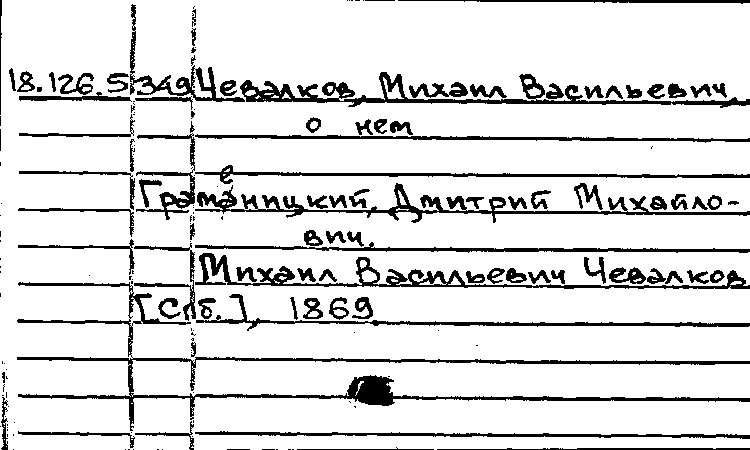 18.126.5 349 Чевалков, Михаил Васильевич,
о нем
е
Граманицкий, Дмитрий Михайло-
вич.
Михаил Васильевич Чевалков
[Спб.], 1869